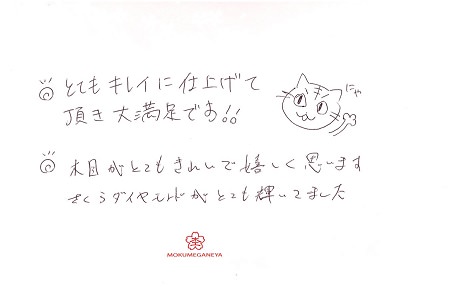 とてもキレイに仕上げて
頂き大満足です!!
にゃ
木目がとてもきれいで嬉しく思います
さくらダイヤモンドがとても輝いてました
MOKUMEGANEYA